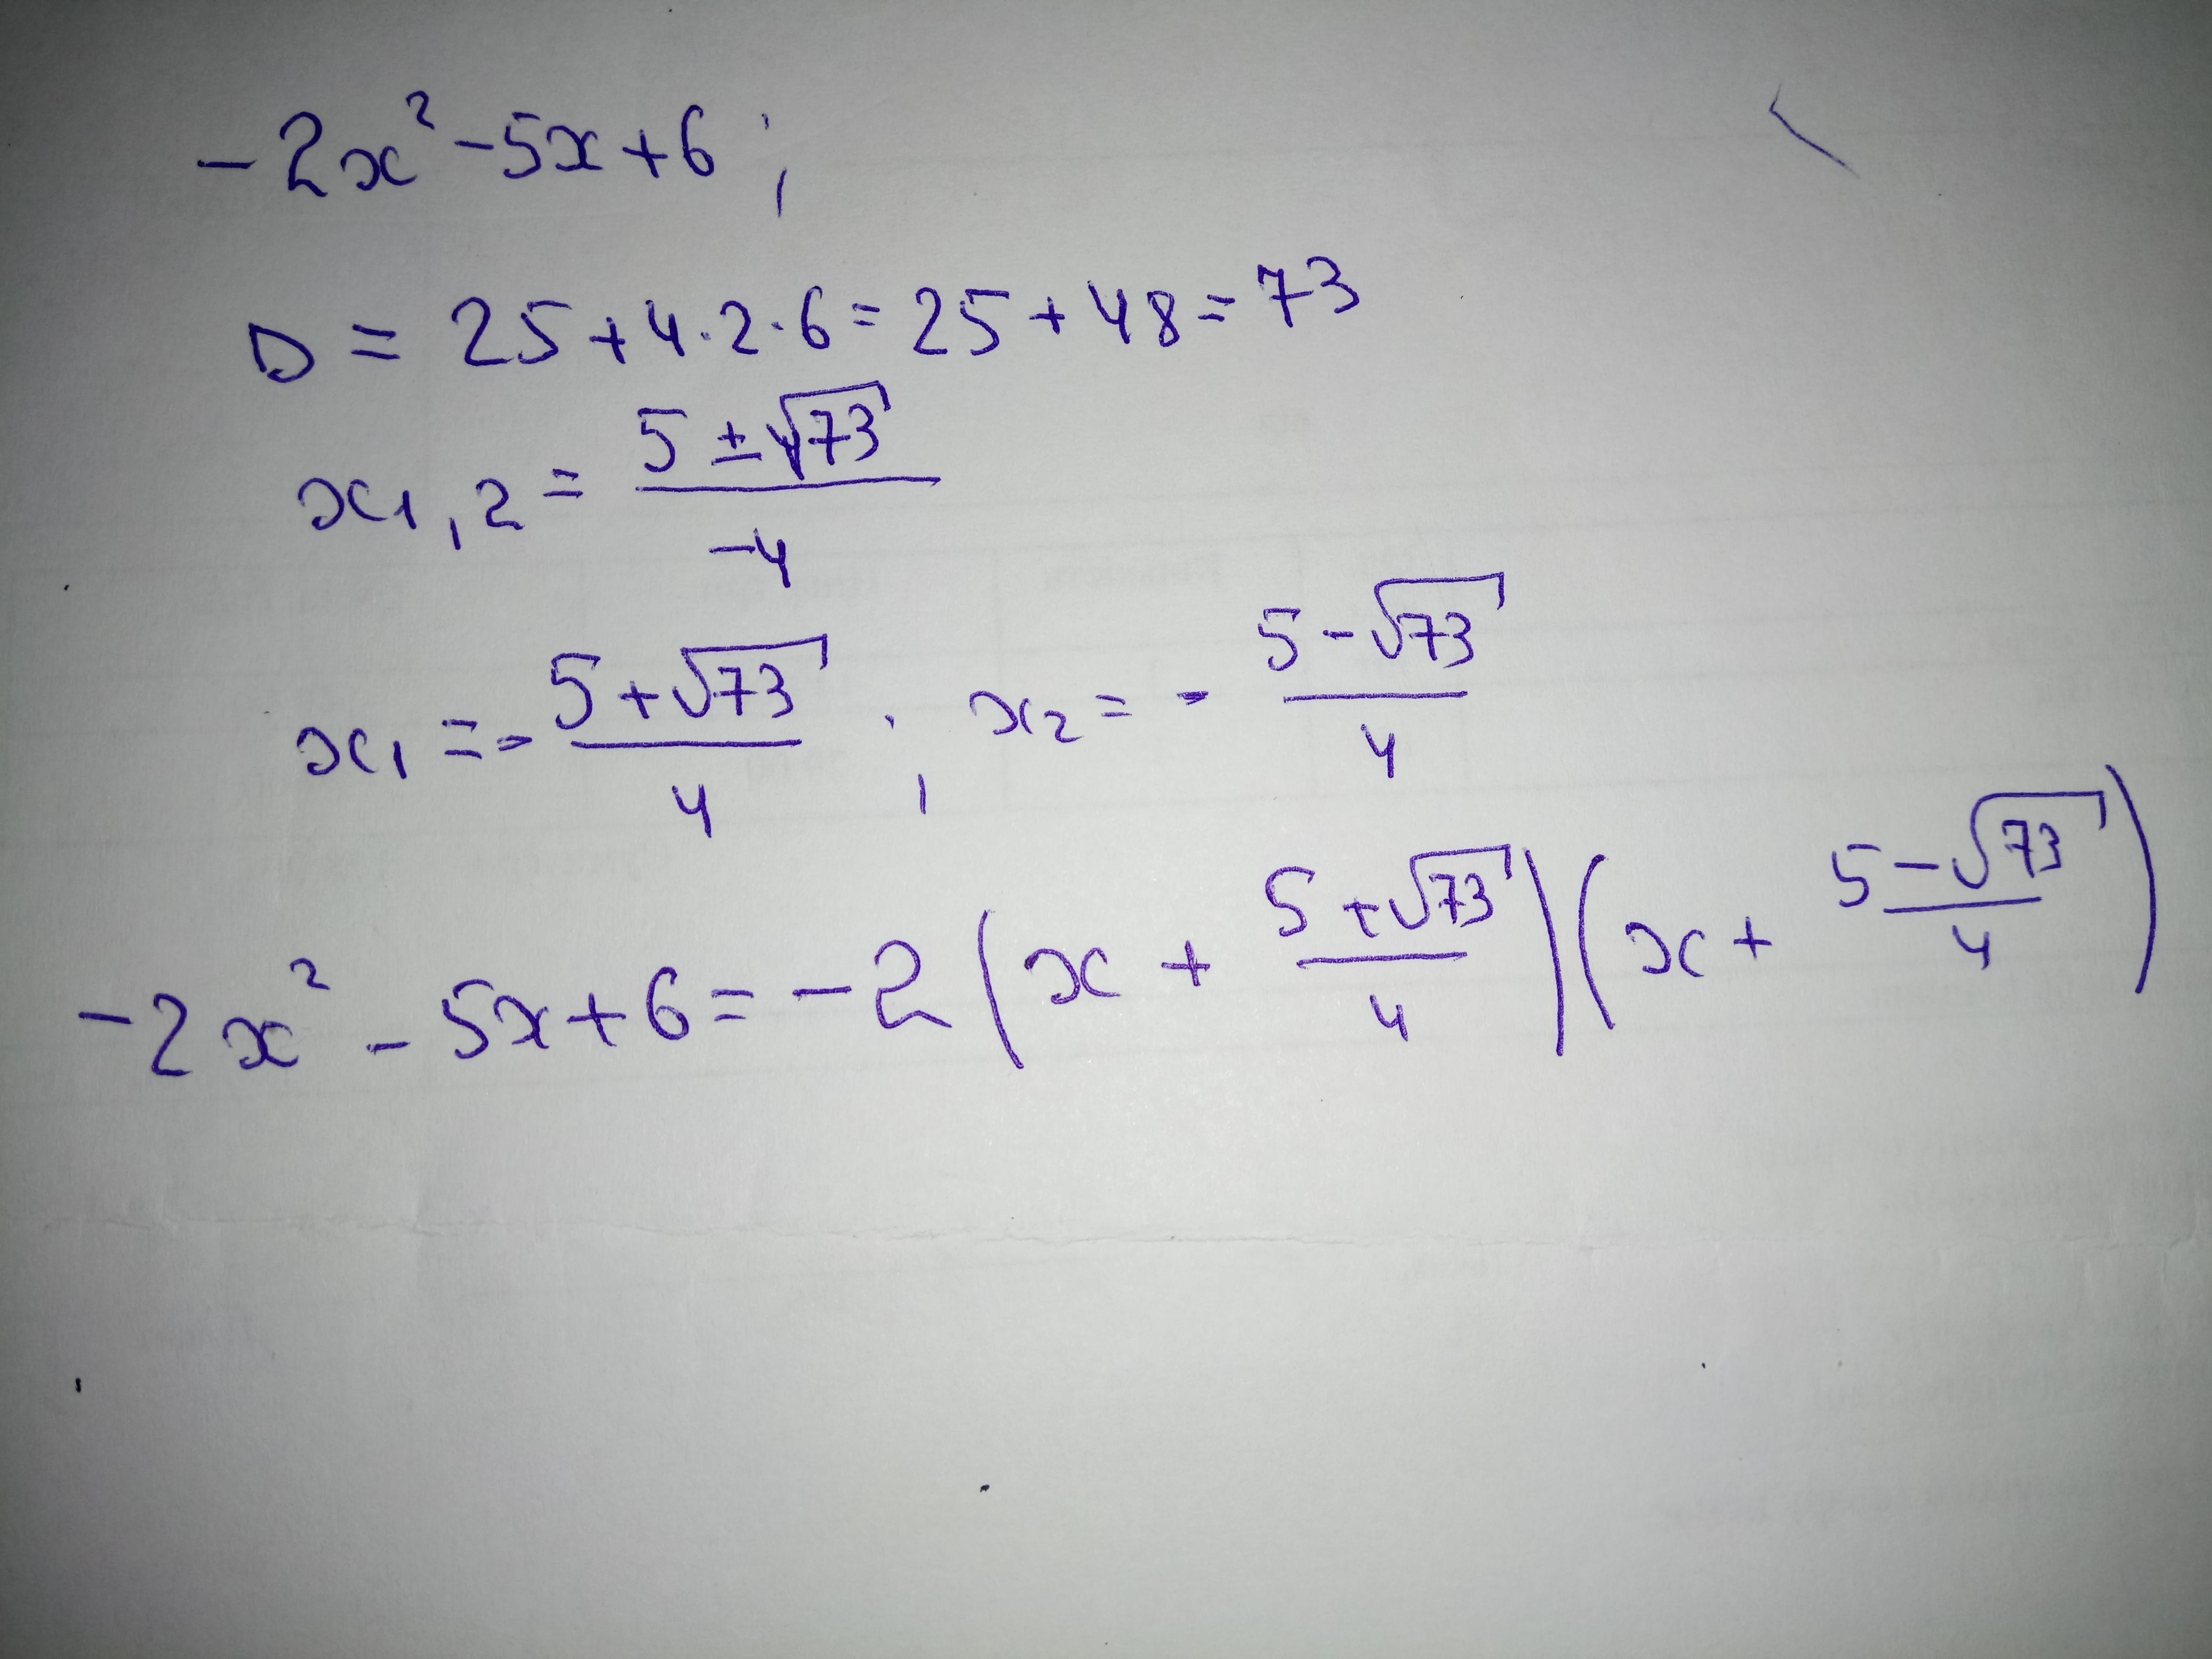 -2x² - 5x + 6 ;
D = 25 + 4·2·6 = 25 + 48 = 73
x₁,₂ = (5 ± √73) / -4
x₁ = - (5 + √73) / 4 ; x₂ = - (5 - √73) / 4
-2x² - 5x + 6 = -2 (x + (5 + √73) / 4) (x + (5 - √73) / 4)